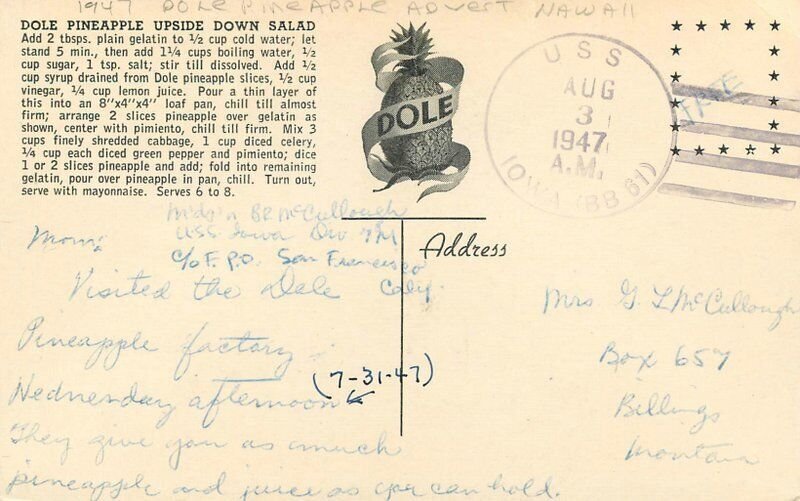 1947 DOLE PINEAPPLE ADVERT HAWAII
DOLE PINEAPPLE UPSIDE DOWN SALAD
Add 2 tbsps. plain gelatin to ½ cup cold water; let
stand 5 min., then add 1¼ cups boiling water, ½
cup sugar, 1 tsp. salt; stir till dissolved. Add ½
cup syrup drained from Dole pineapple slices, ½ cup
vinegar, ¼ cup lemon juice. Pour a thin layer of
this into an 8"x4"x4" loaf pan, chill till almost
firm; arrange 2 slices pineapple over gelatin as
shown, center with pimiento, chill till firm. Mix 3
cups finely shredded cabbage, 1 cup diced celery,
¼ cup each diced green pepper and pimiento; dice
1 or 2 slices pineapple and add; fold into remaining
gelatin, pour over pineapple in pan, chill. Turn out,
serve with mayonnaise. Serves 6 to 8.
DOLE
USS
AUG
3
1947
A.M.
IOWA (BB 61)
FREE
Mids'n B R McCullough
USS Iowa Div 7M
c/o F.P.O. San Francisco
Caly.
Mom:
Visited the Dole
Pineapple factory
Wednesday afternoon
(7-31-47)
They give you as much
pineapple and juice as you can hold.
Address
Mrs G L McCullough
Box 657
Billings
Montana